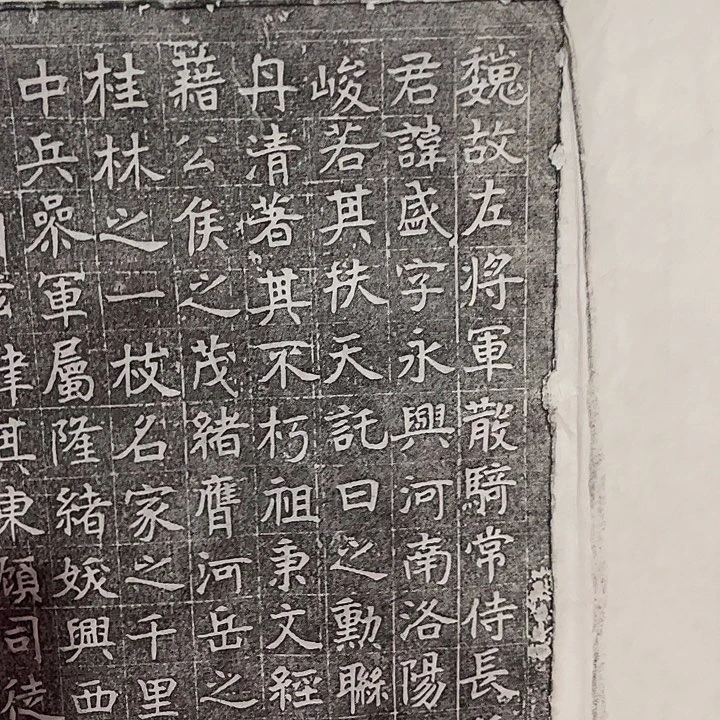 魏故左將軍散騎常侍長
君諱盛字永興河南洛陽
峻若其扶天託日之勳聯
丹清著其不朽祖秉文經
藉公侯之茂緒膺河岳之
桂林之一枝名家之千里
中兵參軍屬隆緒娥興西
律其東頓司徒